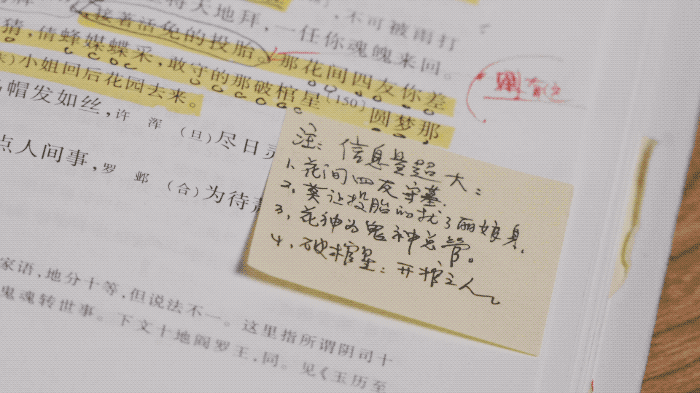 天地拜,一任你魂魄来回。
,不可被雨打
接著活免的投胎。那花间四友你差
猜,倩蜂媒蝶采,敢守的那破棺星(150)圆梦那
小姐回后花园去来。
帽发如丝,许 浑 (旦)尽日灵
点人间事,罗 邺 (合)为待
家语,地分十等,但说法不一。这里指所谓阴司十
鬼魂转世事。下文十地阎罗王,同。见《玉历至
注:信息量超大:
1、花间四友守墓.
2、莫让投胎的扰了丽娘身.
3、花神为鬼神总管。
4、破棺星:开棺之人。